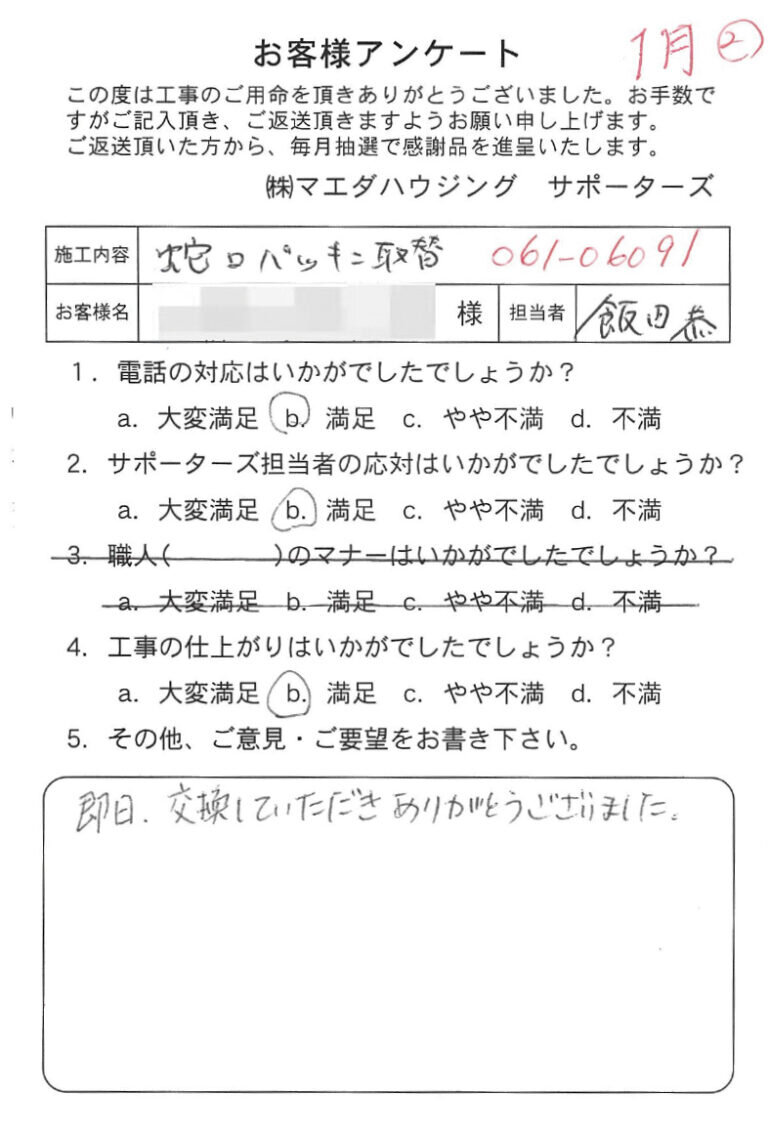 1月②
お客様アンケート
この度は工事のご用命を頂きありがとうございました。お手数で
すがご記入頂き、ご返送頂きますようお願い申し上げます。
ご返送頂いた方から、毎月抽選で感謝品を進呈いたします。
㈱マエダハウジング　サポーターズ
施工内容 蛇口パッキン取替 061-06091
お客様名 様 担当者 飯田恭
1. 電話の対応はいかがでしたでしょうか？
a. 大変満足 b. 満足 c. やや不満 d. 不満
2. サポーターズ担当者の応対はいかがでしたでしょうか？
a. 大変満足 b. 満足 c. やや不満 d. 不満
3. 職人(　　　　)のマナーはいかがでしたでしょうか？
a. 大変満足 b. 満足 c. やや不満 d. 不満
4. 工事の仕上がりはいかがでしたでしょうか？
a. 大変満足 b. 満足 c. やや不満 d. 不満
5. その他、ご意見・ご要望をお書き下さい。
即日、交換していただきありがとうございました。